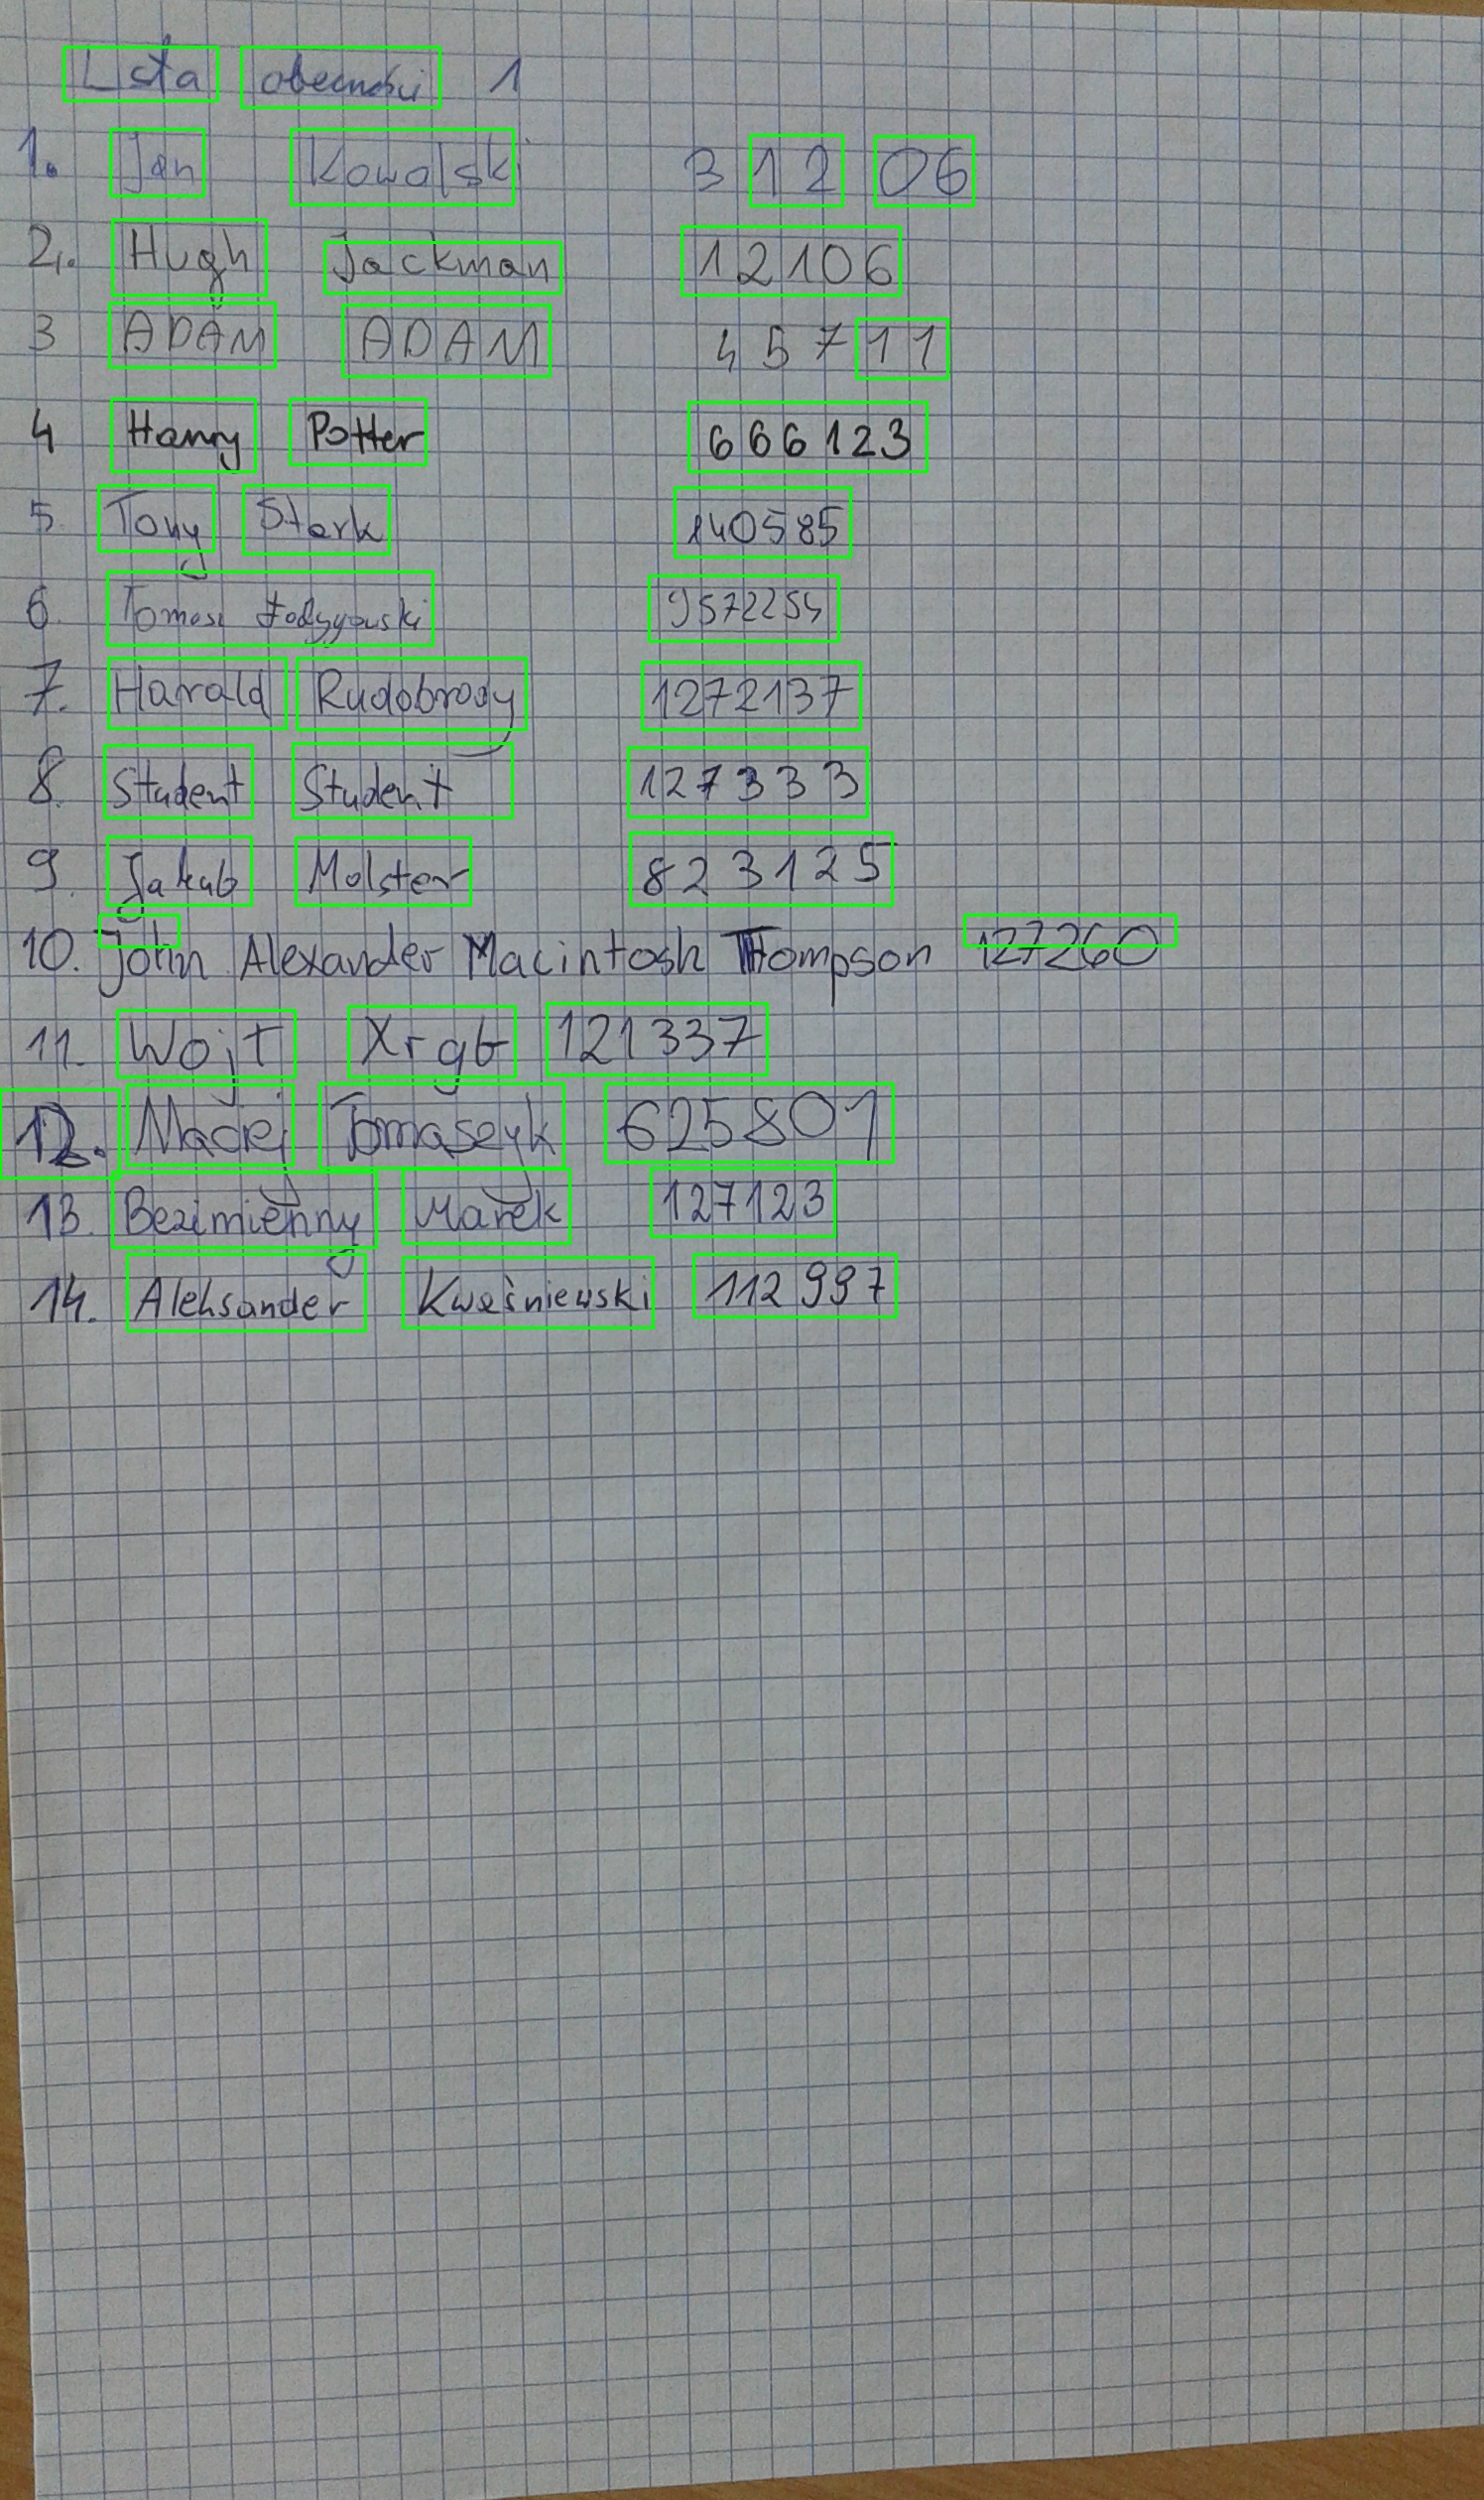 Lista obecności 1
1. Jan Kowalski 3 12 06
2. Hugh Jackman 12106
3 ADAM ADAM 45711
4 Harry Potter 666123
5. Tony Stark 140585
6. Tomasz 9572254
7. Harald Rudobrody 1272137
8. Student Student 127333
9. Jakub Molster 823125
10. John Alexander Macintosh Thompson 127260
11. Wojt Xrgb 121337
12. Maciej Tomaszyk 625801
13. Bezimienny Marek 127123
14. Aleksander Kwaśniewski 112997